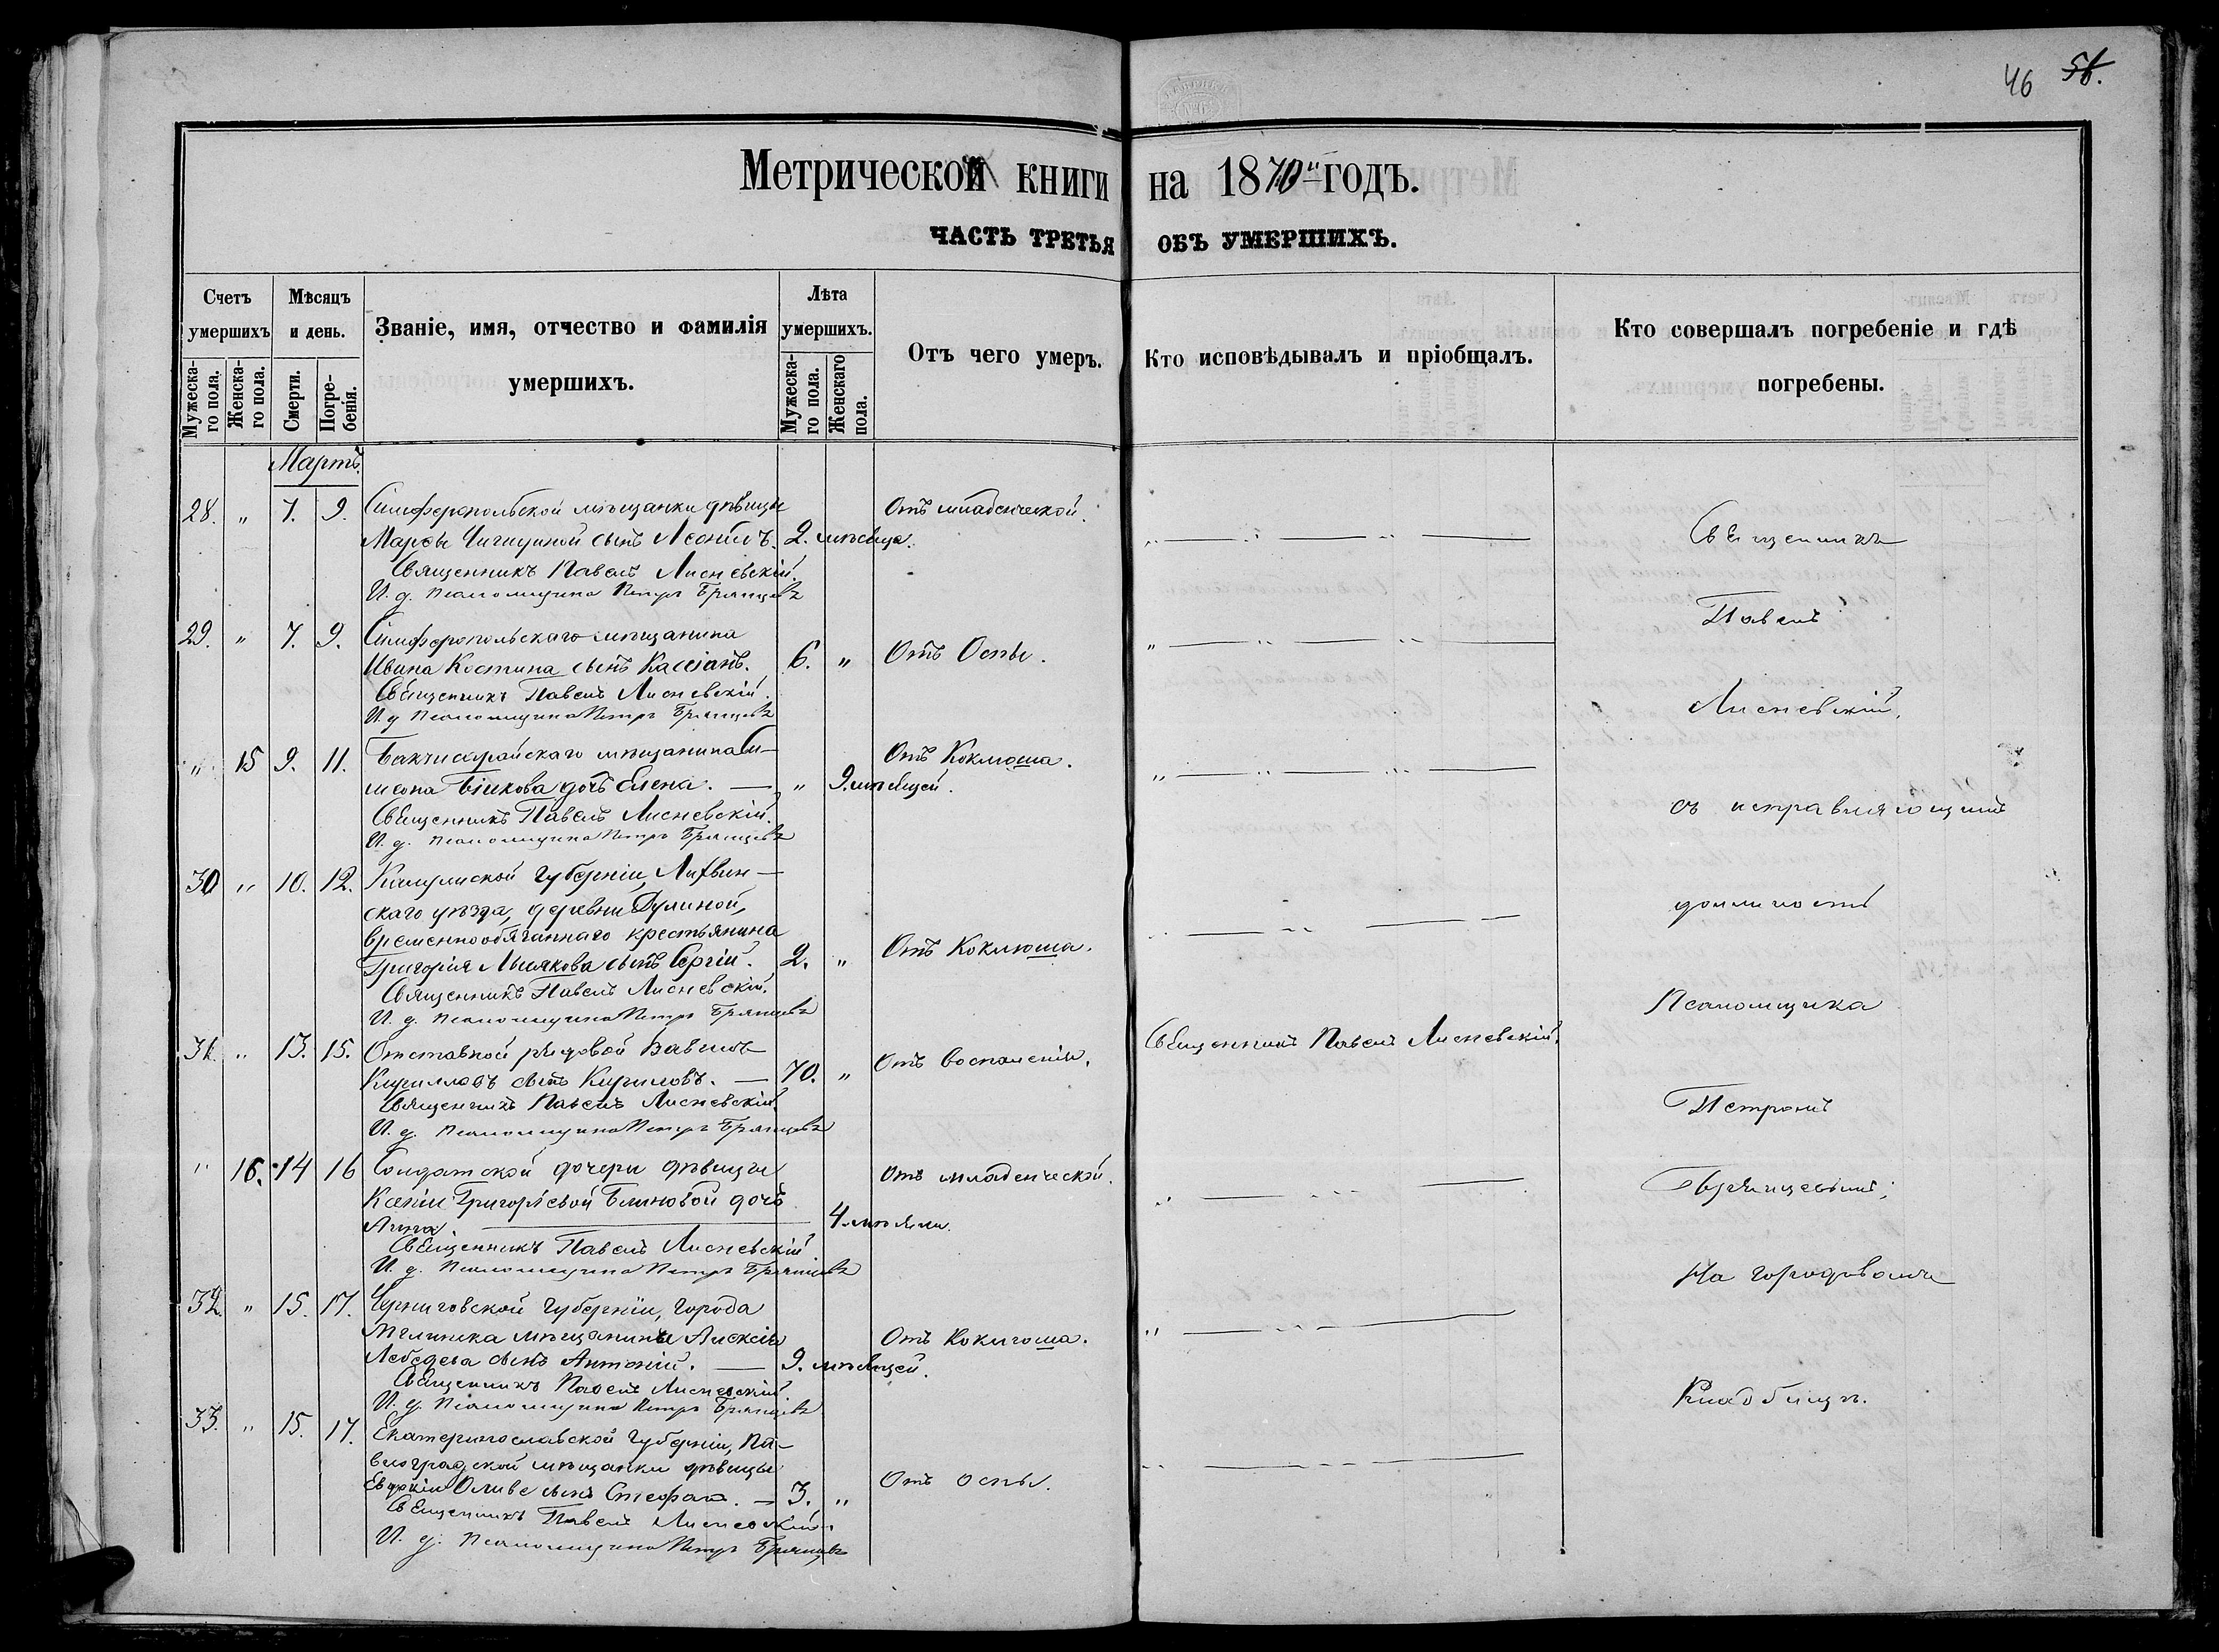 46 56.
Метрической книги на 1870й годъ.
ЧАСТЬ ТРЕТЬЯ ОБЪ УМЕРШИХЪ.
Счетъ умершихъ
Мужеска-го пола.
Женска-го пола.
Мѣсяцъ и день.
Смерти.
Погре-бенія.
Званіе, имя, отчество и фамилія умершихъ.
Лѣта умершихъ.
Мужеска-го пола.
Женскаго пола.
Отъ чего умеръ.
Кто исповѣдывалъ и пріобщалъ.
Кто совершалъ погребеніе и гдѣ погребены.
Мартъ.
28. " 7. 9. Симферопольской мѣщанки дѣвицы Отъ младенческой.
Марѳы сынъ Леонидъ. 2. мѣсяца.
Священникъ Павелъ Лисневскій.
И. д. Псаломщика Петръ Брянцевъ
29. " 7. 9. Симферопольскаго мѣщанина
Ивана Костина сынъ Кассіанъ. 6. " Отъ Оспы.
Священникъ Павелъ Лисневскій.
И. д. Псаломщика Петръ Брянцевъ
" 15 9. 11. Бахчисарайскаго мѣщанина Си- Отъ Коклюша.
меона дочь Елена. — " 9. мѣсяцей.
Священникъ Павелъ Лисневскій.
И. д. Псаломщика Петръ Брянцевъ
30 " 10. 12. Калужской Губерніи, Лихвин-
скаго уѣзда, деревни
временнообязаннаго крестьянина
Григорія сынъ Сергій. 2. " Отъ Коклюша.
Священникъ Павелъ Лисневскій.
И. д. Псаломщика Петръ Брянцевъ
31. " 13. 15. Отставной рядовой Вавилъ
Кирилловъ сынъ Кириловъ. — 70. " Отъ воспаленія. Священникъ Павелъ Лисневскій.
Священникъ Павелъ Лисневскій.
И. д. Псаломщика Петръ Брянцевъ
" 16. 14 16 Солдатской дочери дѣвицы Отъ младенческой.
Ксеніи Григорьевой Блиновой дочь
Анна. 4. мѣсяца.
Священникъ Павелъ Лисневскій
И. д. Псаломщика Петръ Брянцевъ
32. " 15. 17. Черниговской Губерніи, города
Мглинска мѣщанина Алексія Отъ Коклюша.
Лебедева сынъ Антоній. — 9. мѣсяцей.
Священникъ Павелъ Лисневскій
И. д. Псаломщика Петръ Брянцевъ
33. " 15. 17. Екатеринославской Губерніи, Па-
влоградской мѣщанки дѣвицы
сынъ Стефанъ. — 3. " Отъ оспы.
Священникъ Павелъ Лисневскій.
И. д. Псаломщика Петръ Брянцевъ
Священникъ
Павелъ
Лисневскій,
съ исправляющимъ
должность
Псаломщика
Петромъ
Брянцевымъ,
На городовомъ
Кладбищѣ.